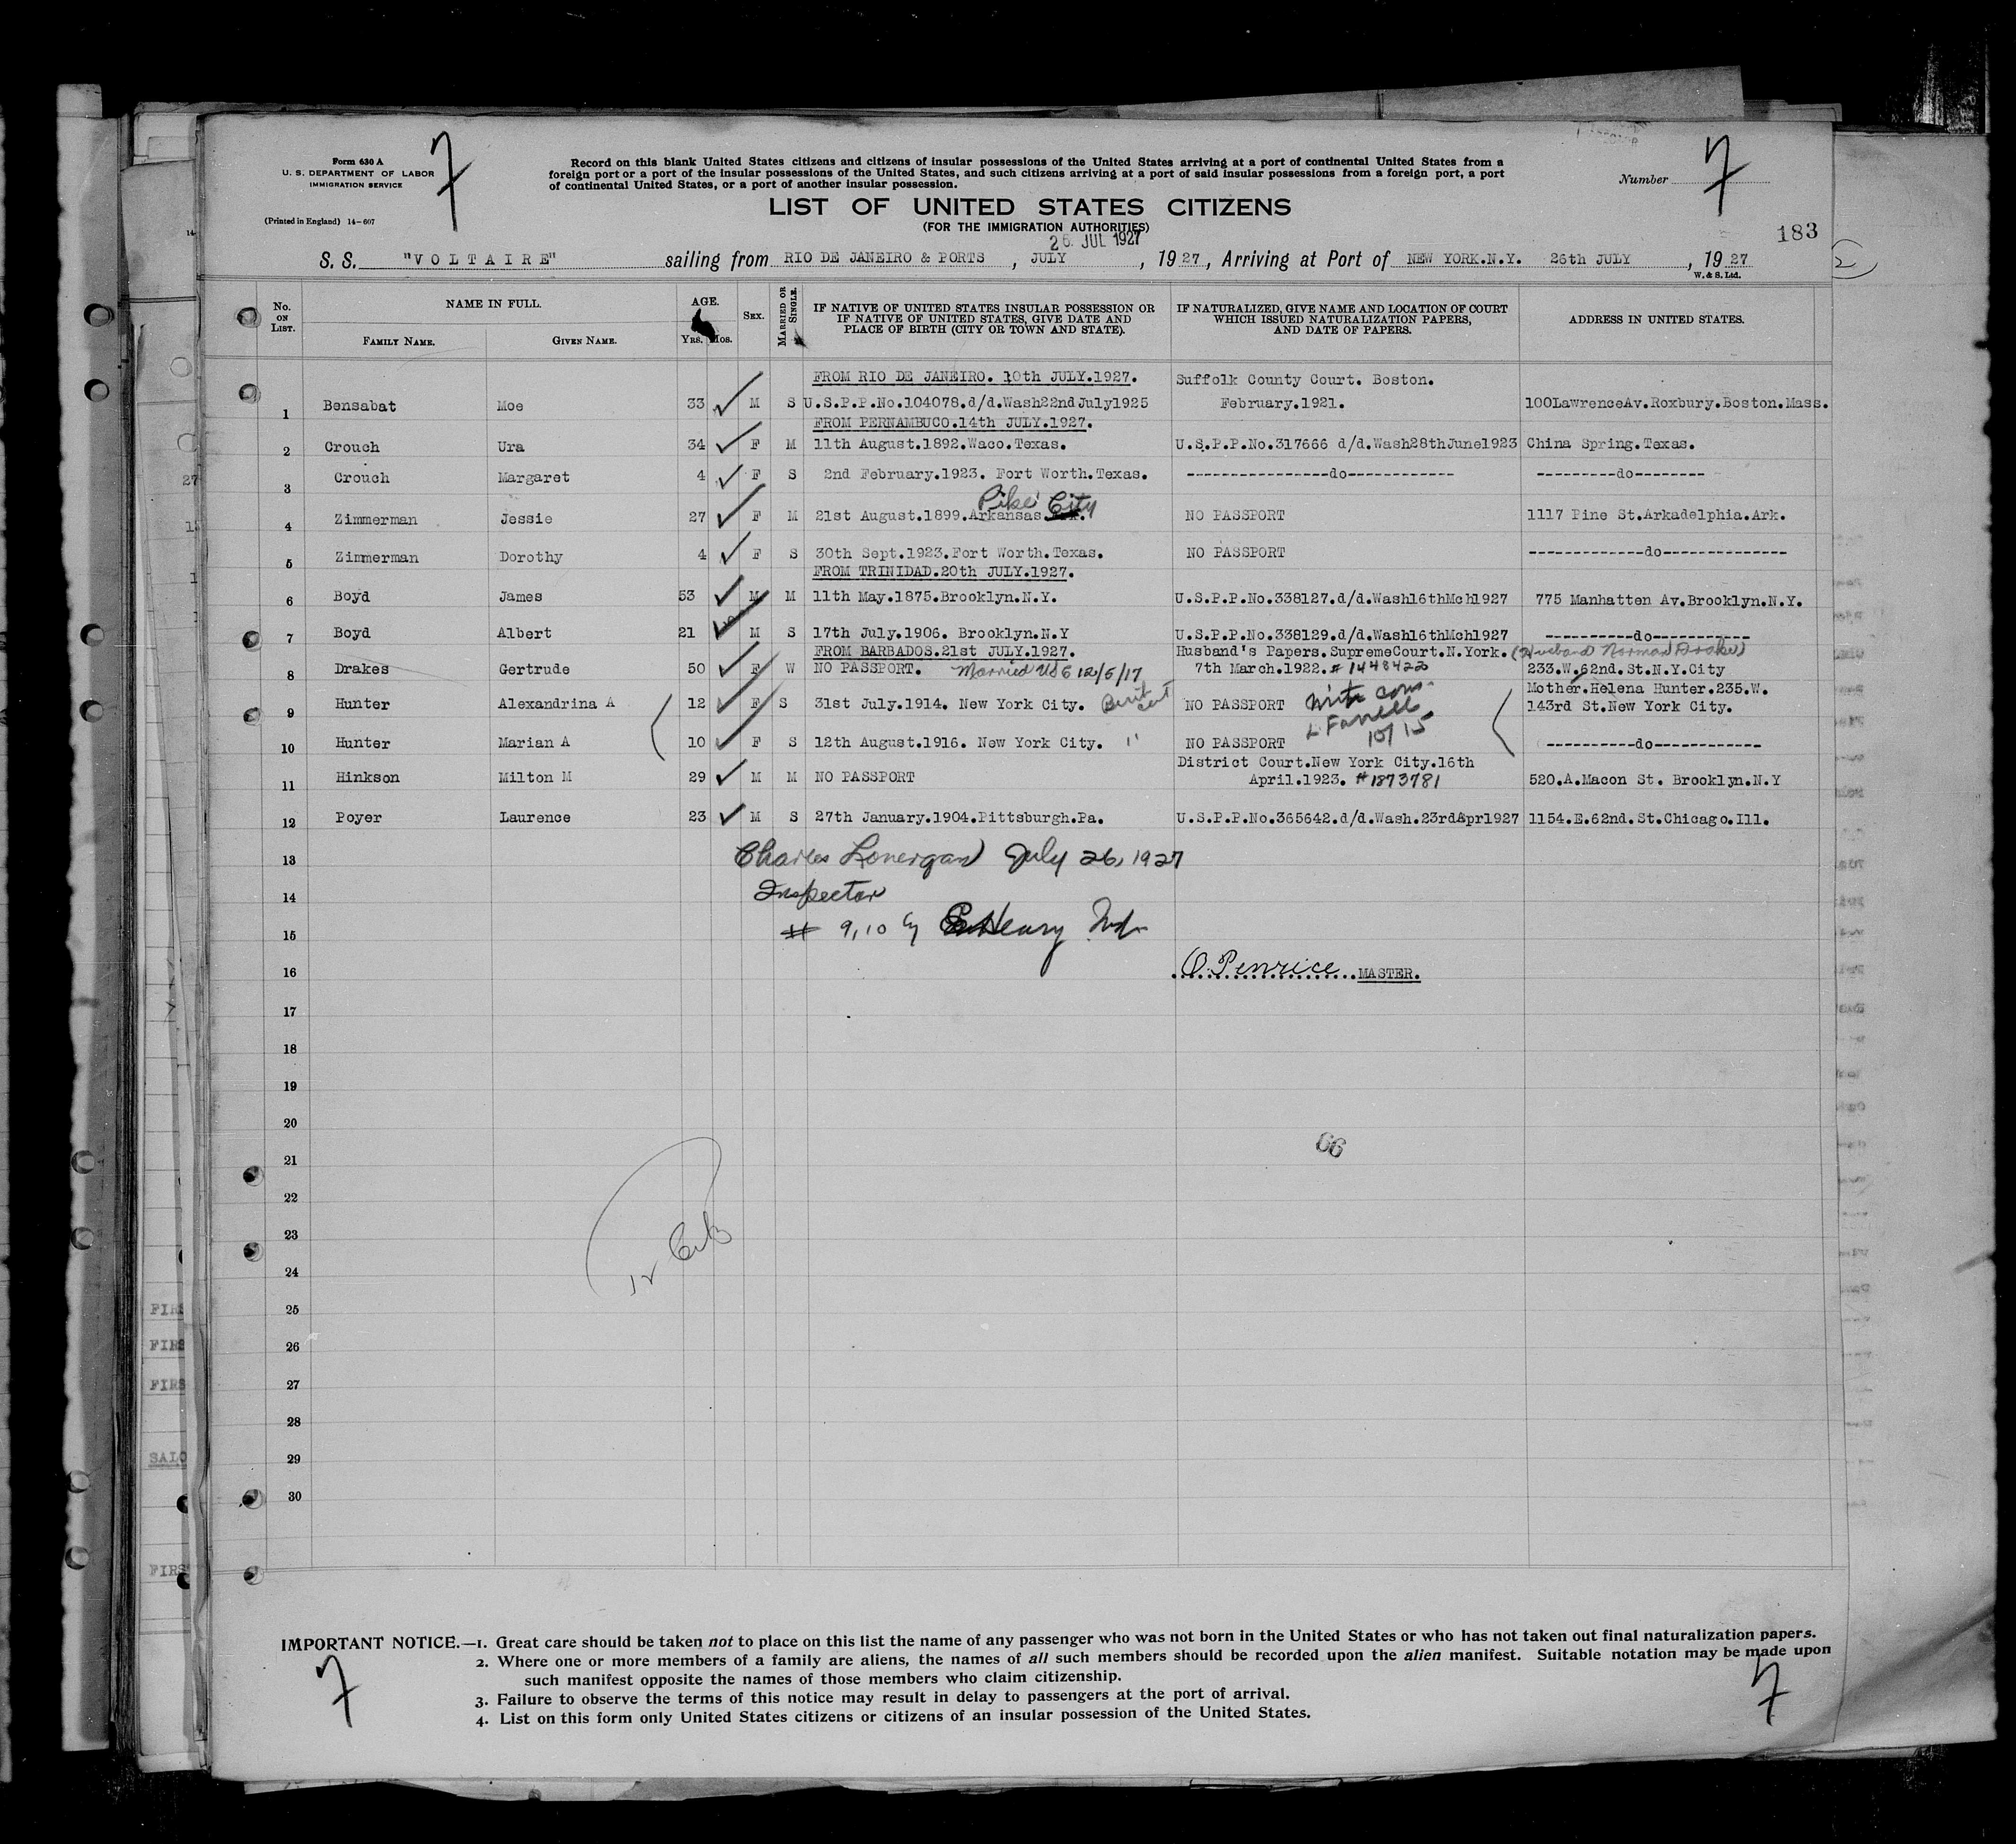 Form 630 A
U. S. DEPARTMENT OF LABOR
IMMIGRATION SERVICE
(Printed in England) 14-607
7
Record on this blank United States citizens and citizens of insular possessions of the United States arriving at a port of continental United States from a
foreign port or a port of the insular possessions of the United States, and such citizens arriving at a port of said insular possessions from a foreign port, a port
of continental United States, or a port of another insular possession.
Number 7
LIST OF UNITED STATES CITIZENS
(FOR THE IMMIGRATION AUTHORITIES)
26 JUL 1927
183
S. S. "VOLTAIRE" sailing from RIO DE JANEIRO & PORTS, JULY, 1927, Arriving at Port of NEW YORK.N.Y. 26th JULY, 1927
W. & S. Ltd.
2
No. ON LIST.
NAME IN FULL.
FAMILY NAME.
GIVEN NAME.
AGE.
YRS. MOS.
SEX.
MARRIED OR SINGLE.
IF NATIVE OF UNITED STATES INSULAR POSSESSION OR
IF NATIVE OF UNITED STATES, GIVE DATE AND
PLACE OF BIRTH (CITY OR TOWN AND STATE).
IF NATURALIZED, GIVE NAME AND LOCATION OF COURT
WHICH ISSUED NATURALIZATION PAPERS,
AND DATE OF PAPERS.
ADDRESS IN UNITED STATES.
FROM RIO DE JANEIRO. 10th JULY.1927. Suffolk County Court. Boston.
1 Bensabat Moe 33 M S U.S.P.P.No.104078.d/d.Wash22ndJuly1925 February.1921. 100LawrenceAv.Roxbury.Boston.Mass.
FROM PERNAMBUCO.14th JULY.1927.
2 Crouch Ura 34 F M 11th August.1892.Waco.Texas. U.S.P.P.No.317666 d/d.Wash28thJune1923 China Spring.Texas.
3 Crouch Margaret 4 F S 2nd February.1923. Fort Worth.Texas. -----------------do------------- ---------do--------
Pike City
4 Zimmerman Jessie 27 F M 21st August.1899.Arkansas. NO PASSPORT 1117 Pine St.Arkadelphia.Ark.
5 Zimmerman Dorothy 4 F S 30th Sept.1923.Fort Worth.Texas. NO PASSPORT -------------do--------------
FROM TRINIDAD.20th JULY.1927.
6 Boyd James 53 M M 11th May.1875.Brooklyn.N.Y. U.S.P.P.No.338127.d/d.Wash16thMch1927 775 Manhatten Av.Brooklyn.N.Y.
7 Boyd Albert 21 M S 17th July.1906. Brooklyn.N.Y U.S.P.P.No.338129.d/d.Wash16thMch1927 ----------do-----------
FROM BARBADOS.21st JULY.1927. Husband's Papers.SupremeCourt.N.York. (Husband Norman Drakes)
8 Drakes Gertrude 50 F W NO PASSPORT. Married US 12/5/17 7th March.1922. # 1448422 233.W.62nd.St.N.Y.City
Mother.Helena Hunter.235.W.
9 Hunter Alexandrina A 12 F S 31st July.1914. New York City. Birth cert NO PASSPORT 143rd St.New York City.
10 Hunter Marian A 10 F S 12th August.1916. New York City. " NO PASSPORT 10/15 ----------do------------
District Court.New York City.16th
11 Hinkson Milton M 29 M M NO PASSPORT April.1923. #1873781 520.A.Macon St. Brooklyn.N.Y
12 Poyer Laurence 23 M S 27th January.1904.Pittsburgh.Pa. U.S.P.P.No.365642.d/d.Wash.23rdApr1927 1154.E.62nd.St.Chicago.Ill.
13 Charles Lonergan July 26, 1927
14 Inspector
15 # 9,10 by Henry
16 O. Penrice MASTER.
17
18
19
20
21
66
22
23
24
25
26
27
28
29
30
IMPORTANT NOTICE.—1. Great care should be taken not to place on this list the name of any passenger who was not born in the United States or who has not taken out final naturalization papers.
2. Where one or more members of a family are aliens, the names of all such members should be recorded upon the alien manifest. Suitable notation may be made upon
such manifest opposite the names of those members who claim citizenship.
3. Failure to observe the terms of this notice may result in delay to passengers at the port of arrival.
4. List on this form only United States citizens or citizens of an insular possession of the United States.
7
7
FIRS
FIRS
FIRS
SALO
FIRS